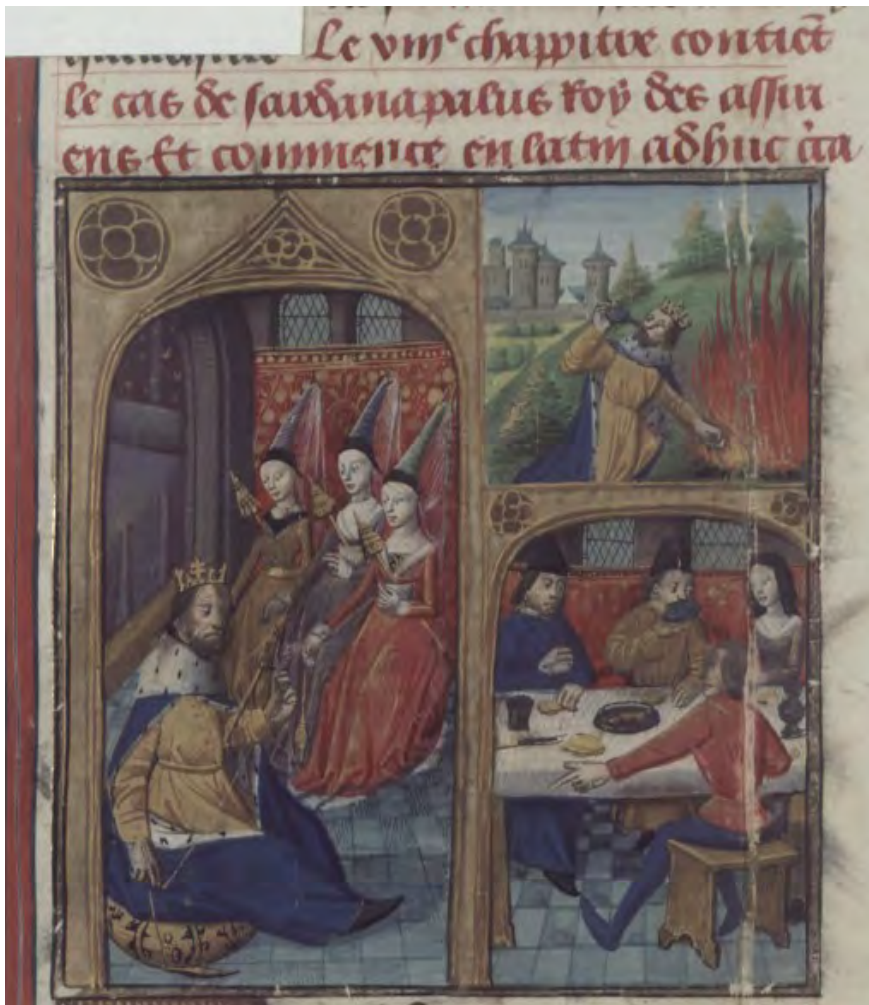 Le viii^e chappitre contiẽt
le cas de sardanapalus roy des assiri
ens Et commence en latin adhuc